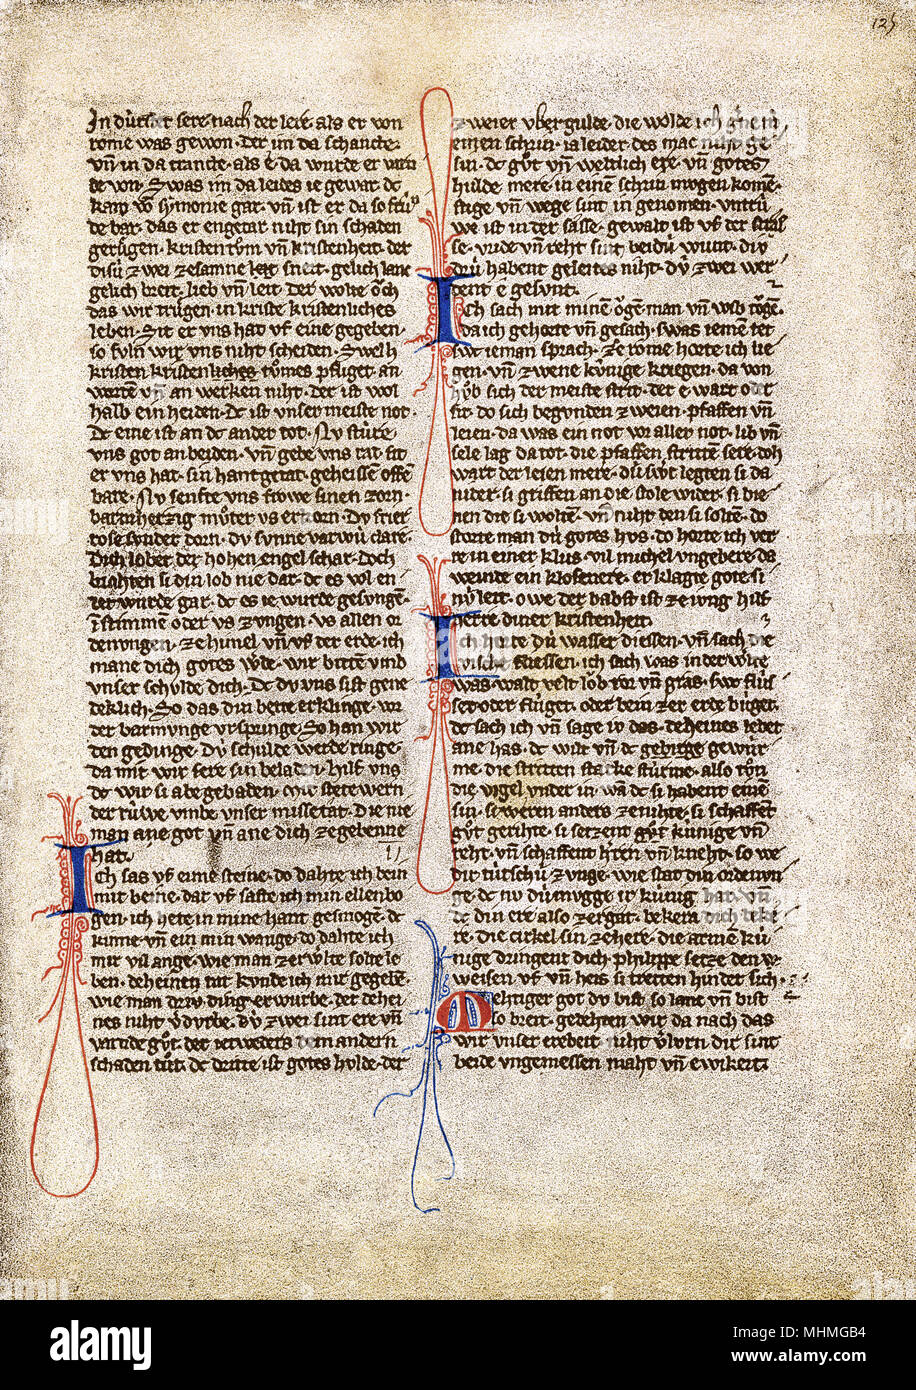 125
In dúrstet sere nach der lere als er von
rome was gewon. der im da schancte.
vn̄ in da trancte. als e. da wurde er varn
de von. Swas im da leides ie gewar. dc
kam vō symonie gar. vn̄ ist er da so frúⁿ
de bar. das er engetar niht sin schaden
gerůgen. kristentům vn̄ kristenheit. der
disú zwei zesamne leit sneit. gelich lanc
gelich breit. lieb vn̄ leit. der wolte ǒch
das wir trůgen. in kriste kristenliches
leben. Sit er vns hat vf eine gegeben.
so suln wir vns niht scheiden. Swelh
kristen kristenliches tůmes pfliget. an
worten vn̄ an werken niht. der ist wol
halb ein heiden. dc ist vnser meiste not.
dc eine ist an dc ander tot. Nv stúre
vns got an beiden. vn̄ gebe vns rat sit
er vns hat. sin hant getat. geheissen offē
bare. Nv senfte vns frowe sinen zorn.
barmherzig můter vs erkorn. dv frier
rose sunder dorn. dv sunne varwú clare.
Dich lobet der hohen engel schar. doch
brahten si din lob nie dar. dc es vol en
det wurde gar. dc es ie wurde gesungē.
in stimme oder vs zungen. vs allen or
denungen. ze himel vn̄ vf der erde. ich
mane dich gotes werde. wir bitten vmb
vnser schulde dich. dc du vns sist gene
deklich. So das din bette erklinge. vor
der barmunge vrspringe. So han wir
den gedinge. dv schulde werde ringe.
da mit wir sere sin beladen. hilf vns
dc wir si abe gebaden. mit stete wern
der rúwe vmbe vnser missetat. die nie
man ane got vn̄ ane dich ze gebenne
hat.
Ich sas vf eime steine. do dahte ich bein
mit beine. dar vf saste ich min ellenbo
gen. ich hete in mine hant gesmogē. dc
kinne vn̄ ein min wange. do dahte ich
mir vil ange. wie man zer welte solte le
ben. deheinen rat kvnde ich mir gegebē.
wie man driv ding erwurbe. der dehei
nes niht v̓durbe. dv́ zwei sint ere vn̄
varnde gůt. der ietweders dem andern
schaden tůt. dc dritte ist gotes hulde. der
zweier vbergulde. die wolde ich gerne in
einen schrin. ia leider des mac niht ge
sin. dc gůt vn̄ weltlich ere. vn̄ gotes
hulde mere. in einen schrin mogen komē.
stige vn̄ wege sint in genomen. untrú
we ist in der sasse. gewalt ist vf der stras
se. vride vn̄ reht sint beidú wunt. dú
drú habent geleites niht. dv́ zwei wer
dent e gesunt.
Ich sach mit minē ǒgē. man vn̄ wib tǒgē.
da ich gehorte vn̄ gesach. swas iemē tet
swc ieman sprach. ze rome horte ich lie
gen. vn̄ zwene kúnige kriegen. da von
hůb sich der meiste strit. der e wart oder
sit. do sich begvnden zweien. pfaffen vn̄
leien. da was ein not vor aller not. lib vn̄
sele lag da tot. die pfaffen stritten sere. doh
wart der leien mere. dú swert legten si da
nider. si griffen an die stole wider. si bie
nen die si wolten. vn̄ niht den si solten. do
storte man dú gotes hvs. do horte ich ver
re in einer klus. vil michel vngebere. da
weinde ein klosenere. er klagte gote si
nv́ leit. owe der babst ist ze iung. hilf
herre diner kristenheit.
Ich horte dú wasser diessen. vn̄ sach die
vische fliessen. ich sach was in der welte
was. walt velt lob ror vn̄ gras. swc flús
set oder flúget. oder bein zer erde búget.
dc sach ich vn̄ sage iv das. deheines lebet
ane has. dc wilt vn̄ dc gebirge gewúr
me. die stritten starke stúrme. also tǒn
die vogel vnder in. wā dc si habent einē
sin. si weren anders ze nihte. si schaffent
gůt gerihte. si setzent gůt kúnige vn̄
reht. vn̄ schaffent hʼren vn̄ kneht. so we
dir tútschú zvnge. wie stat din ordenvn
ge. dc nv dú mvgge ir kúnig hat. vn̄
dc din ere also zergat. bekera dich beke
re. die cirkel sin ze here. die armē kú
nige dringent dich. philippe setze den w
weisen vf. vn̄ heis si tretten hinder sich.
Mehtiger got dv bist so lanc vn̄ bist
so breit. gedehten wir da nach das
wir vnser erebeit niht v̓lorn. dir sint
beide vngemessen maht vn̄ ewikeit.
alamy
Image ID: MHMGB4
www.alamy.com